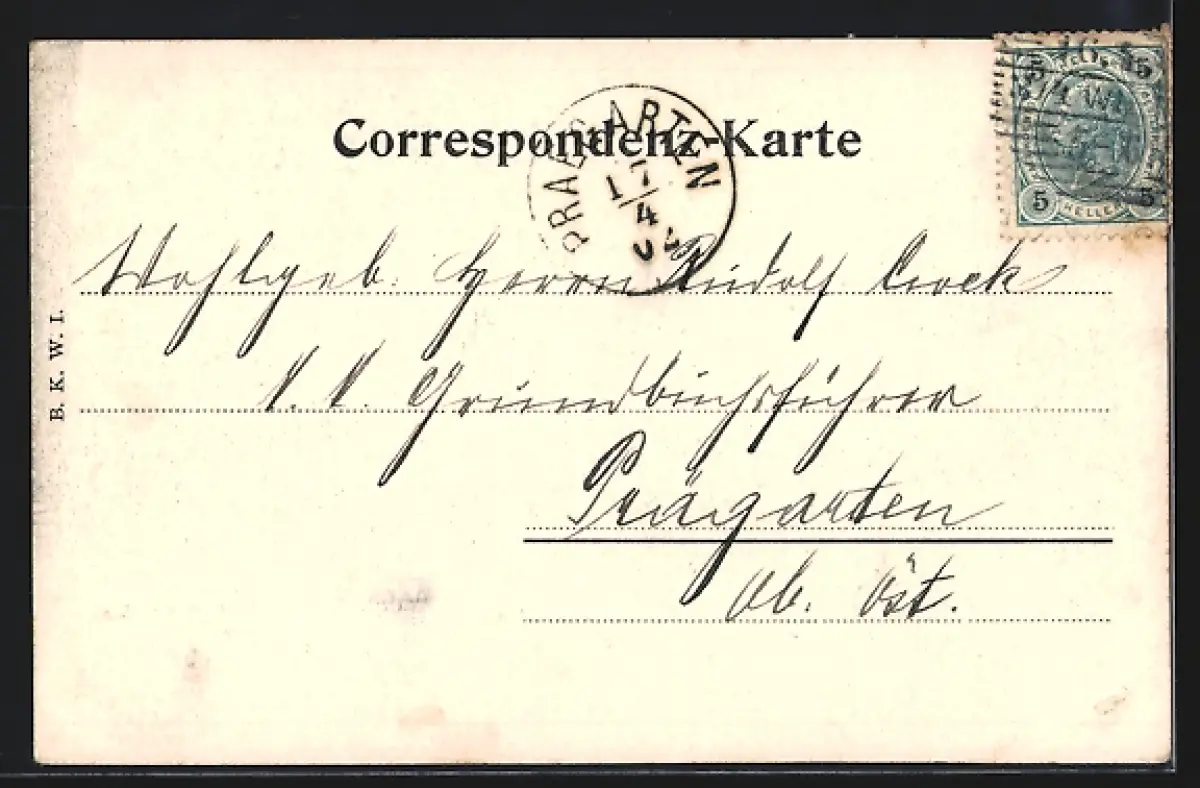 Correspondenz-Karte
PRAEGARTEN
17/4
5 5
5 HELLER 5
Wohlgeb. Herrn Rudolf
k. k. Grundbuchsführer
Prägarten
Ob. Öst.
B. K. W. I.